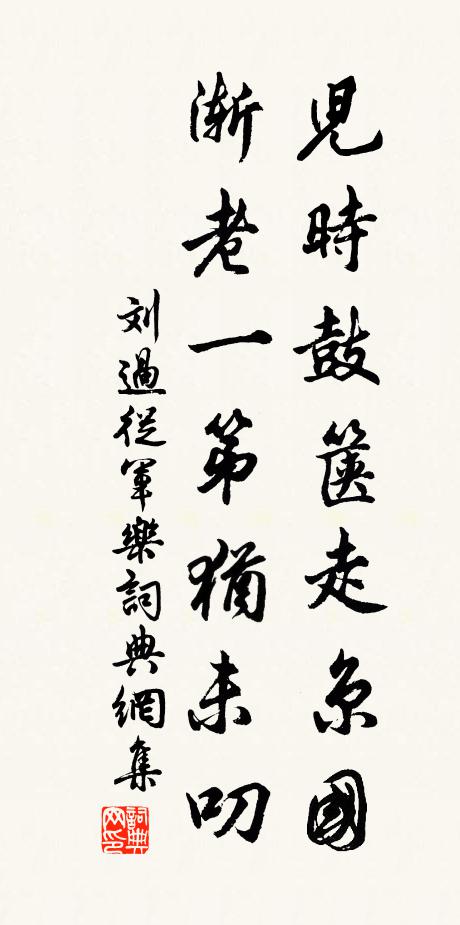 兒時鼓篋走京國
漸老一第猶未叨
刘過從軍樂詞典網集
詞典
网印